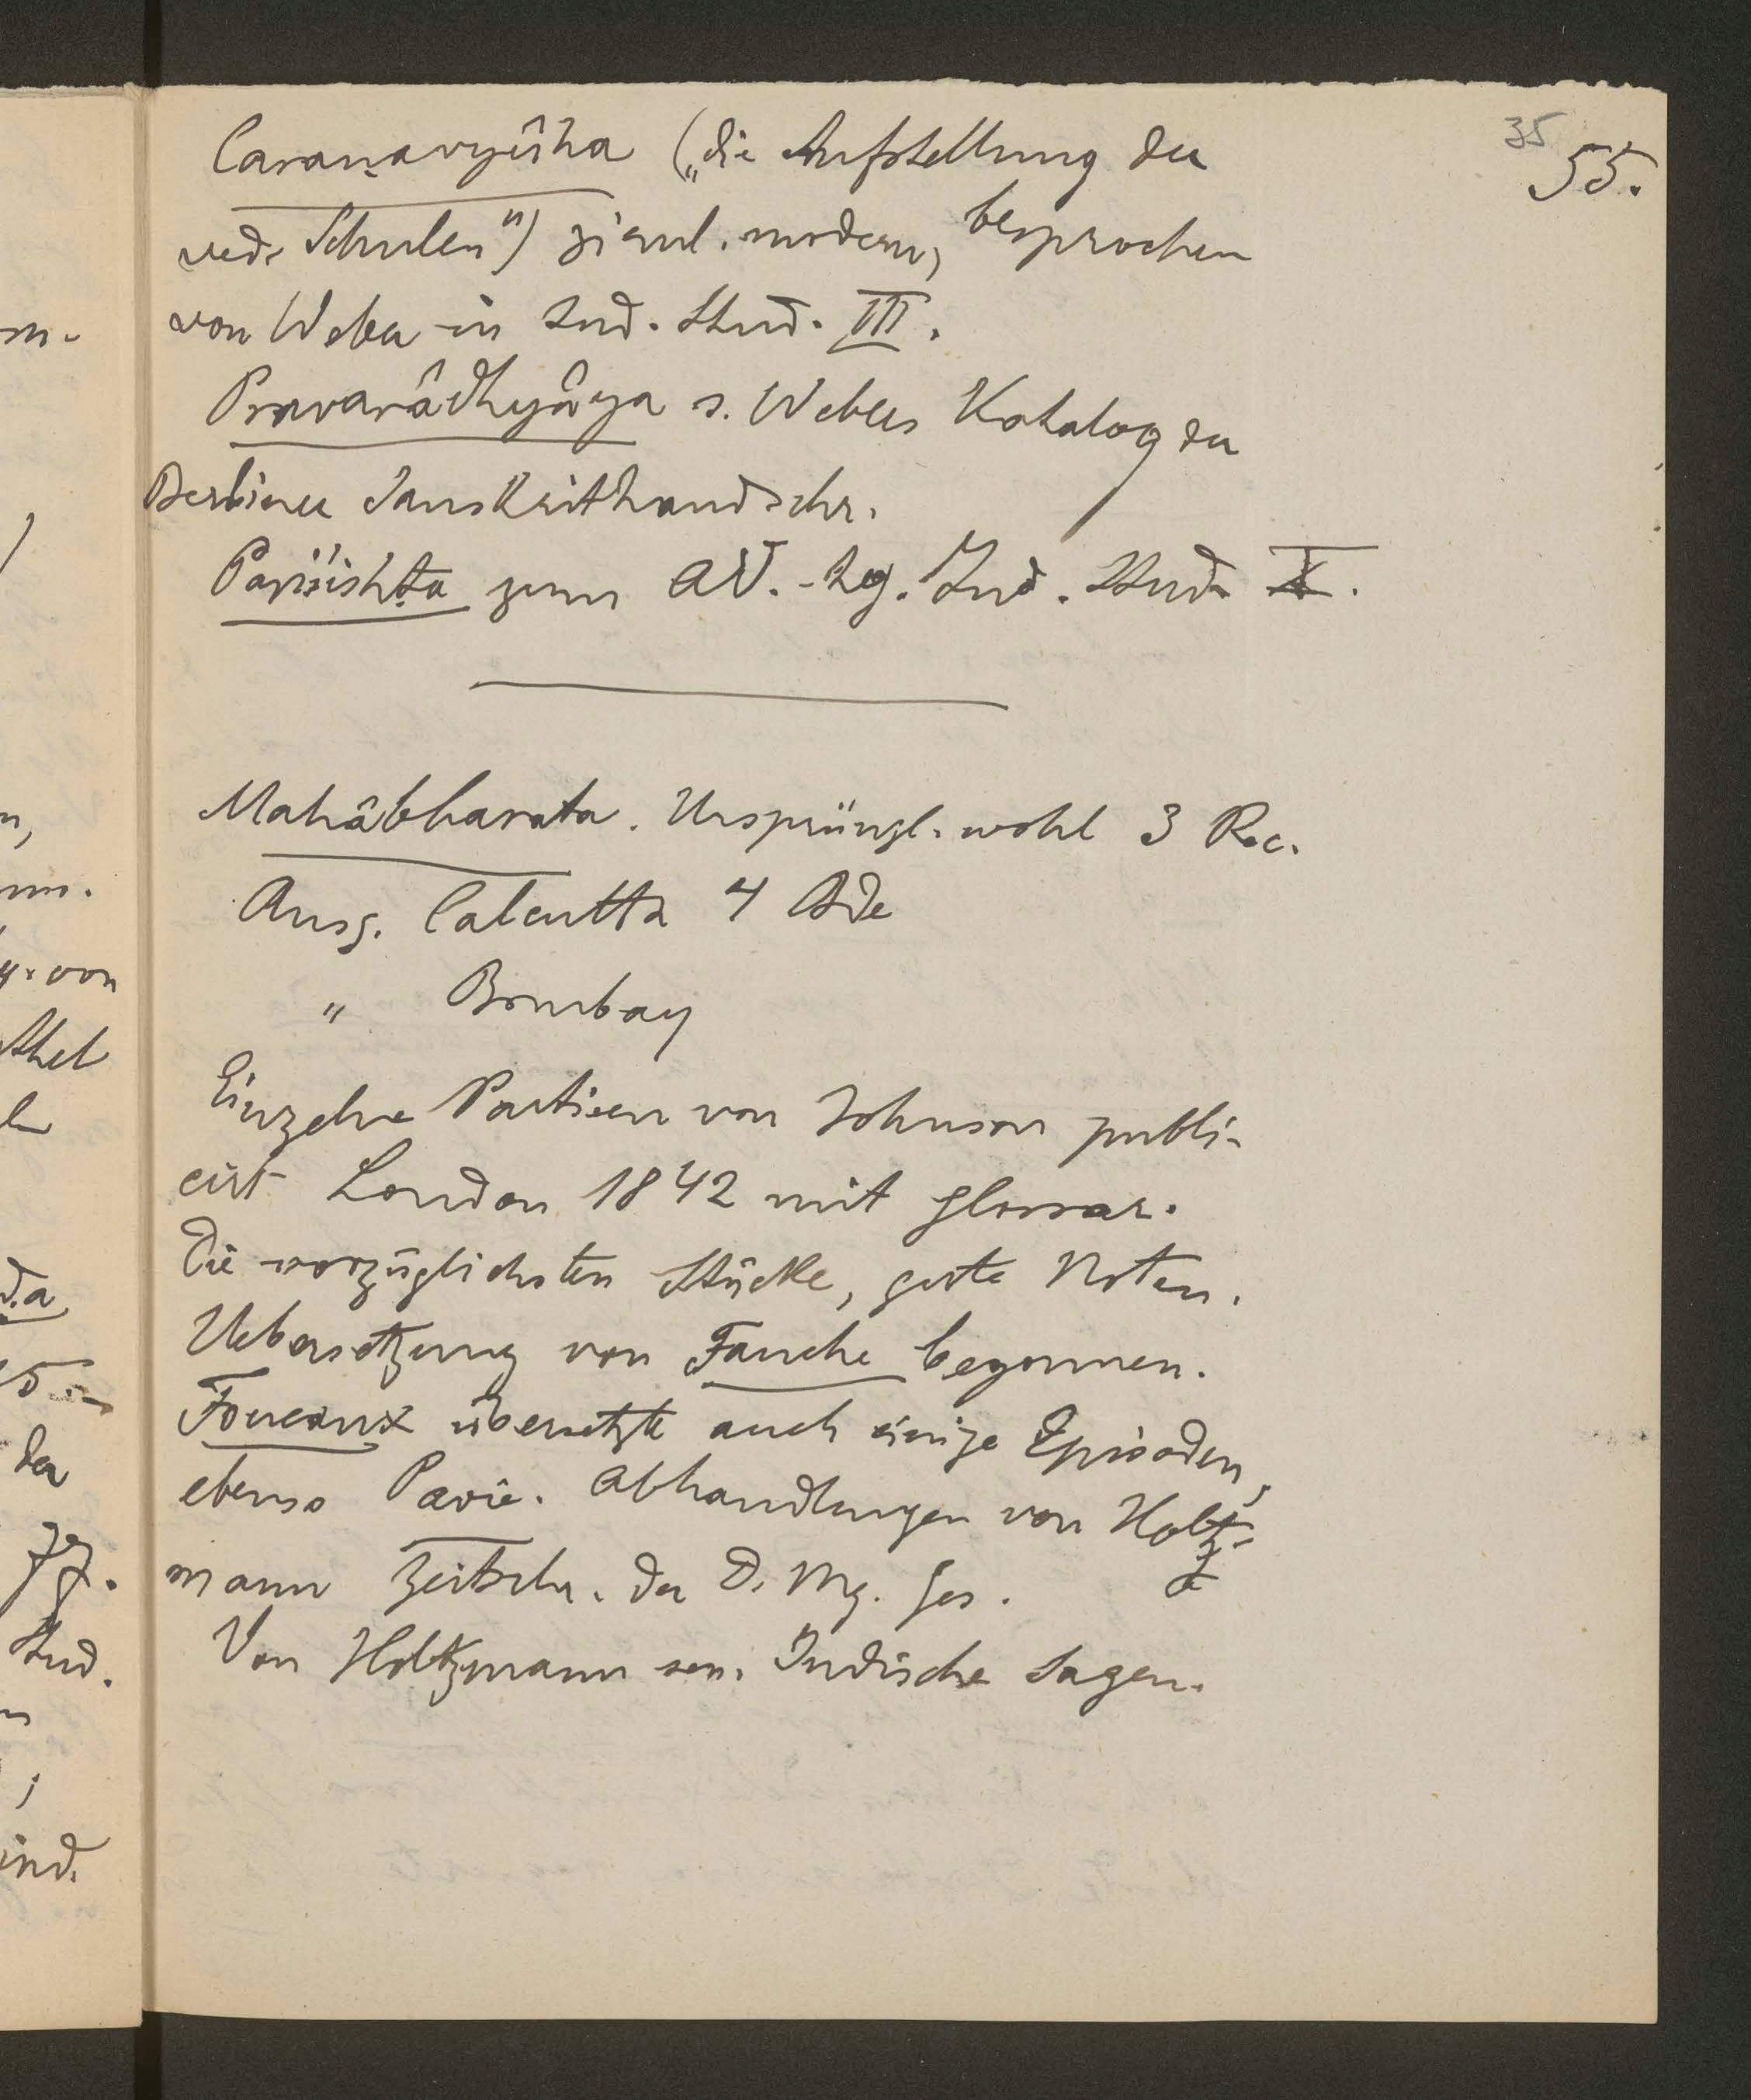 35
55.
Caraṇavyûha („die Aufstellung der
ved. Schulen") zieml. modern, besprochen
von Weber in Ind. Stud. III.
Pravarâdhyâya s. Webers Katalog der
Berliner Sanskrithandschr.
Pariśishṭa zum AV. - hg. Ind. Stud. X.
Mahâbharata. Ursprüngl. wohl 3 Rec.
Ausg. Calcutta 4 Bde
" Bombay
Einzelne Partieen von Johnson publi-
cirt London 1842 mit Glossar.
Die vorzüglichsten Stücke, gute Noten.
Uebersetzung von Fauche begonnen.
Foucaux übersetzte auch einige Episoden,
ebenso Pavie. Abhandlungen von Holtz-
mann Zeitschr. der D. Mg. Ges.
Von Holtzmann sen. Indische Sagen.
m.
)
n,
von
da
5.
der
Stud.
;
ind.